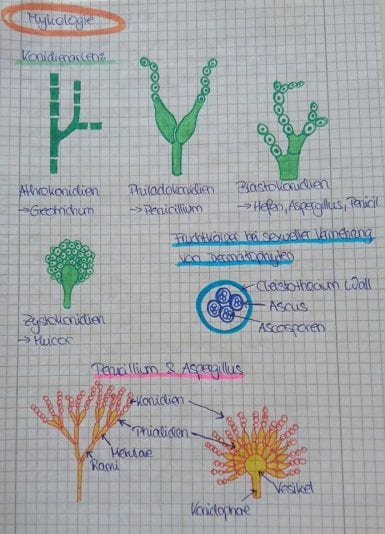 Mykologie
Konidienarten:
Athrokonidien
→ Geotrichum
Philadokonidien
→ Penicillium
Blastokonidien
→ Hefen, Aspergillus, Penicil.
Fruchtkörper bei sexueller Vermehrung
von Dermatophyten
Cleistothecium Wall
Ascus
Ascosporen
Zystokonidien
→ Mucor
Penicillium & Aspergillus
Konidien
Phialiden
Metulae
Rami
Vesikel
Konidophore